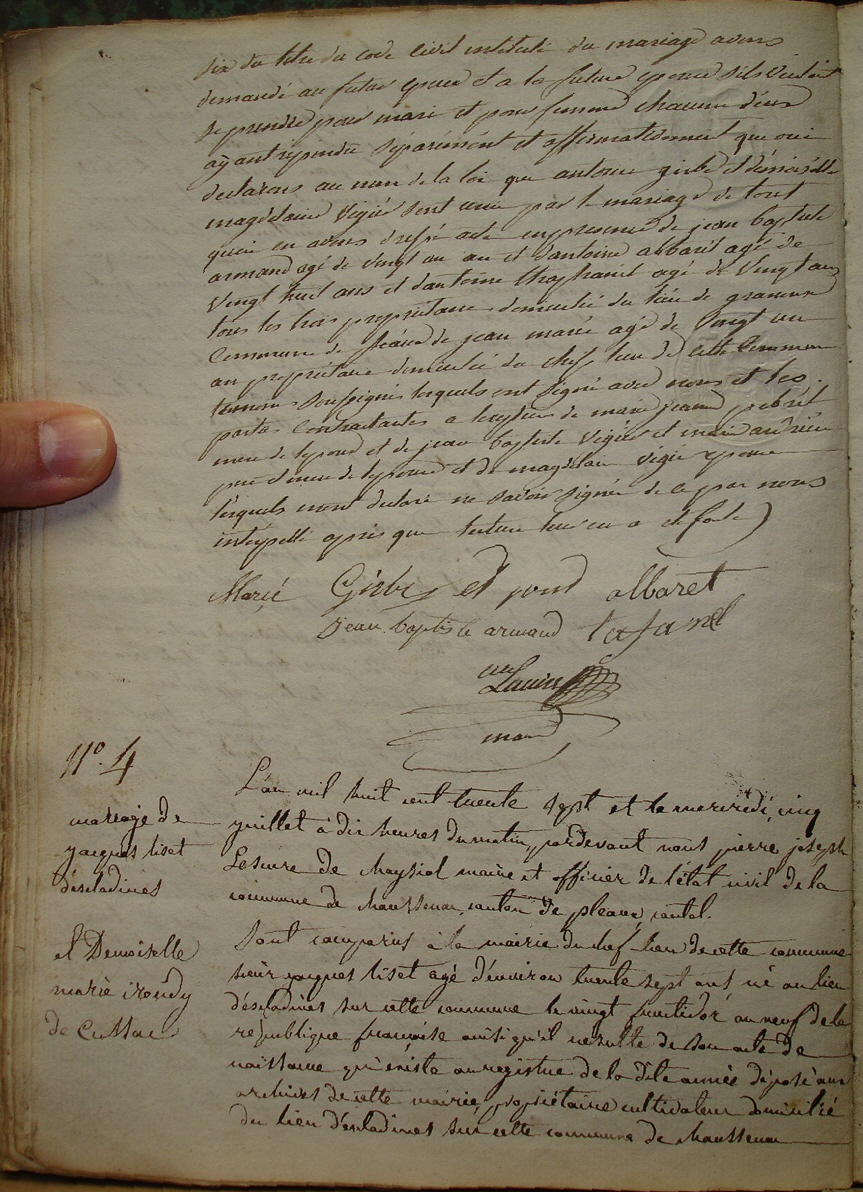 six du titre du code civil intitulé du mariage avons
demandé au futur epoux et a la future epouse sils veulent
se prendre pour mari et pour femme chacun d'eux
ayant repondu séparément et affirmativement que oui
declarons au nom de la loi que antoine girbe et demoiselle
magdelaine vigié sont unis par le mariage de tout
quoi en avons dressé acte en presence de jean baptiste
armand agé de vingt un an et d'antoine albaret agé de
vingt huit ans et d'antoine agé de vingt ans
tous les trois propriétaires domicilié du lieu de
commune de de jean marié agé de vingt un
an propriétaire domicilié du chef lieu de cette commune
temoins soussignés lesquels ont signé avec nous et les
parties contractantes a de marie jeanne
mere de lepoux et de jean baptiste vigié et marie
pere et mere de lepouse et de magdelaine vigié epouse
lesquels nont declaré ne savoir signé de ce par nous
interpellé apres que lecture leur en a eté faite
Marié Girbe et poux albaret
Jean baptiste armand lafarel
N° 4
mariage de
jacques liset
déscladines
et Demoiselle
marie irondy
de Cussac
L'an mil huit cent trente sept et le mercredi cinq
juillet à dix heures du matin, pardevant nous pierre joseph
Lescure de maire et officier de l'état civil de la
commune de Chaussenac, canton de pleaux, cantal.
Sont comparus à la mairie du chef lieu de cette commune
sieur jacques liset agé d'environ trente sept ans né au lieu
déscladines sur cette commune le vingt fructidor an neuf de la
république française ainsi qu'il resulte de son acte de
naissance qu'existe au registre de la dite année déposé aux
archives de cette mairie, propriétaire cultivateur domicilié
du lieu d'escladines sur cette commune de Chaussenac